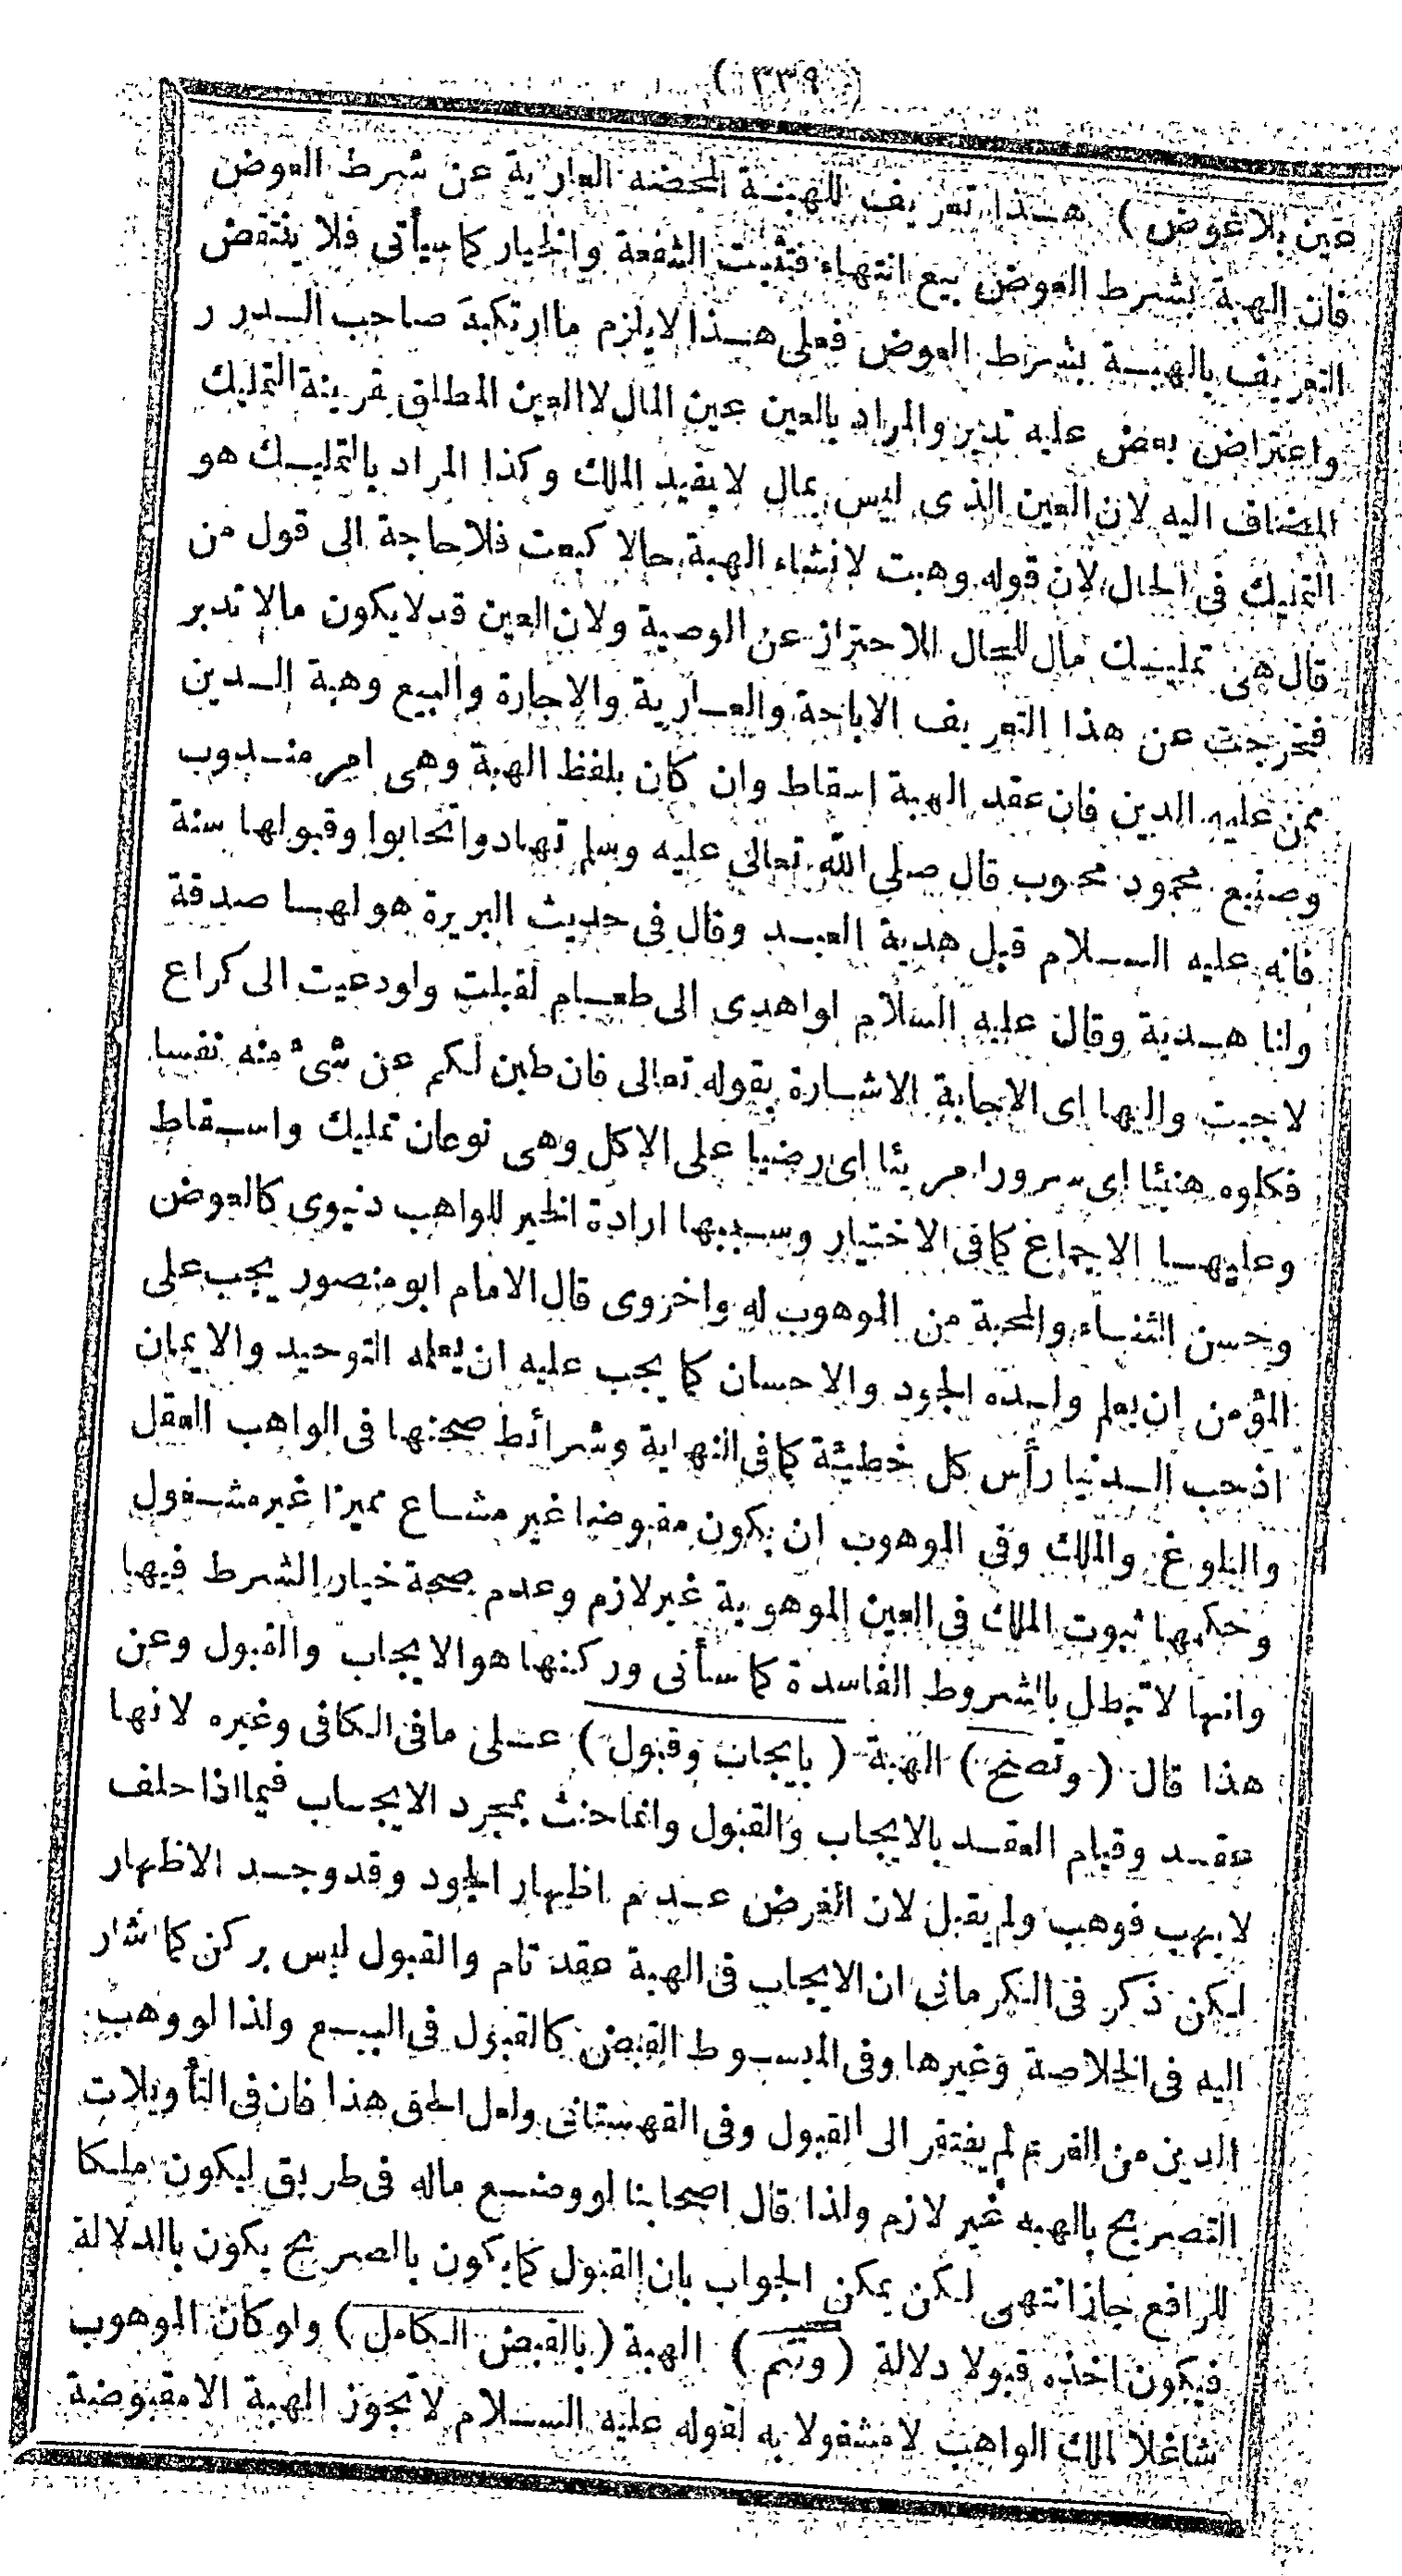 ( ٣٣٩ )
عين بلا عوض ) هذا تعريف للهبة المحضه العارية عن شرط العوض
فان الهبة بشرط العوض بيع انتهاء فتثبت الشفعة والخيار كما سيأتى فلا ينتقض
التعريف بالهبة بشرط العوض فعلى هذا لا يلزم ما ارتكبه صاحب الدرر
واعتراض بعض عليه تدبر والمراد بالعين عين المال لا العين المطلق بقرينة التمليك
المضاف اليه لان العين الذى ليس بمال لا يفيد الملك وكذا المراد بالتمليك هو
التمليك فى الحال لان قوله وهبت لانشاء الهبة حالا كبعت فلا حاجة الى قول من
قال هى تمليك مال للحال للاحتراز عن الوصية ولان العين قد لا يكون مالا تدبر
فخرجت عن هذا التعريف الاباحة والعارية والاجارة والبيع وهبة الدين
ممن عليه الدين فان عقد الهبة اسقاط وان كان بلفظ الهبة وهى امر مندوب
وصنيع محمود محبوب قال صلى الله تعالى عليه وسلم تهادوا تحابوا وقبولها سنة
فانه عليه السلام قبل هدية العبد وقال فى حديث البريرة هو لها صدقة
ولنا هدية وقال عليه السلام لو اهدى الى طعام لقبلت ولو دعيت الى كراع
لاجبت واليها اى الاجابة الاشارة بقوله تعالى فان طبن لكم عن شئ منه نفسا
فكلوه هنيئا اى سرورا مريئا اى رضيا على الاكل وهى نوعان تمليك واسقاط
وعليهما الاجماع كما فى الاختيار وسببها ارادة الخير للواهب دنيوى كالعوض
وحسن الثناء والمحبة من الموهوب له واخروى قال الامام ابو منصور يجب على
المؤمن ان يعلم ولده الجود والاحسان كما يجب عليه ان يعلمه التوحيد والايمان
اذ حب الدنيا رأس كل خطيئة كما فى النهاية وشرائط صحتها فى الواهب العقل
والبلوغ والملك وفى الموهوب ان يكون مقبوضا غير مشاع مميزا غير مشغول
وحكمها ثبوت الملك فى العين الموهوبة غير لازم وعدم صحة خيار الشرط فيها
وانها لا تبطل بالشروط الفاسدة كما سأتى وركنها هو الايجاب والقبول وعن
هذا قال ( وتصح ) الهبة ( بايجاب وقبول ) على ما فى الكافى وغيره لانها
عقد وقيام العقد بالايجاب والقبول وانما حنث بمجرد الايجاب فيما اذا حلف
لا يهب فوهب ولم يقبل لان الغرض عدم اظهار الجود وقد وجد الاظهار
لكن ذكر فى الكرمانى ان الايجاب فى الهبة عقد تام والقبول ليس بركن كما اشار
اليه فى الخلاصة وغيرها وفى المبسوط القبض كالقبول فى البيع ولذا لو وهب
الدين من الغريم لم يفتقر الى القبول وفى القهستانى ولعل الحق هذا فان فى التأويلات
التصريح بالهبه غير لازم ولذا قال اصحابنا لو وضع ماله فى طريق ليكون ملكا
للرافع جاز انتهى لكن يمكن الجواب بان القبول كما يكون بالصريح يكون بالدلالة
فيكون اخذه قبولا دلالة ( وتتم ) الهبة ( بالقبض الكامل ) ولو كان الموهوب
شاغلا لملك الواهب لا مشغولا به لقوله عليه السلام لا تجوز الهبة الا مقبوضة